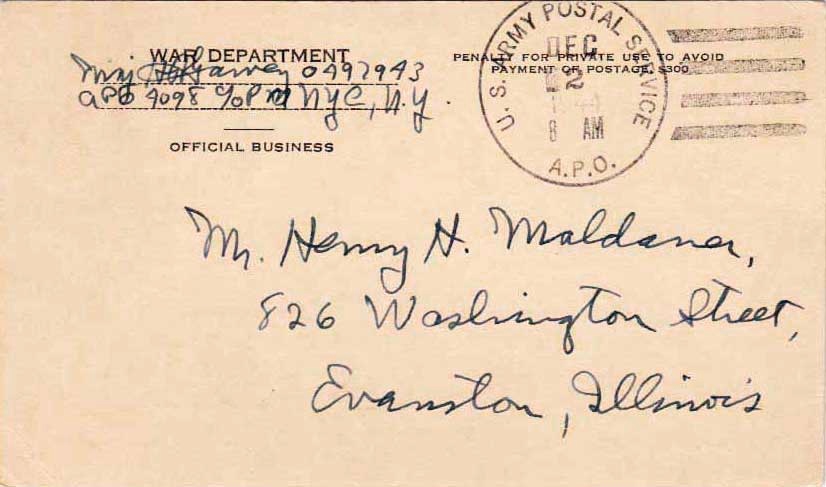 WAR DEPARTMENT
Harvey 0497943
APO 4098 c/o PM NYC, N.Y.
OFFICIAL BUSINESS
PENALTY FOR PRIVATE USE TO AVOID
PAYMENT OF POSTAGE, $300
U. S. ARMY POSTAL SERVICE
DEC
2
1944
8 AM
A.P.O.
Mr. Henry H. Maldaner,
826 Washington Street,
Evanston, Illinois